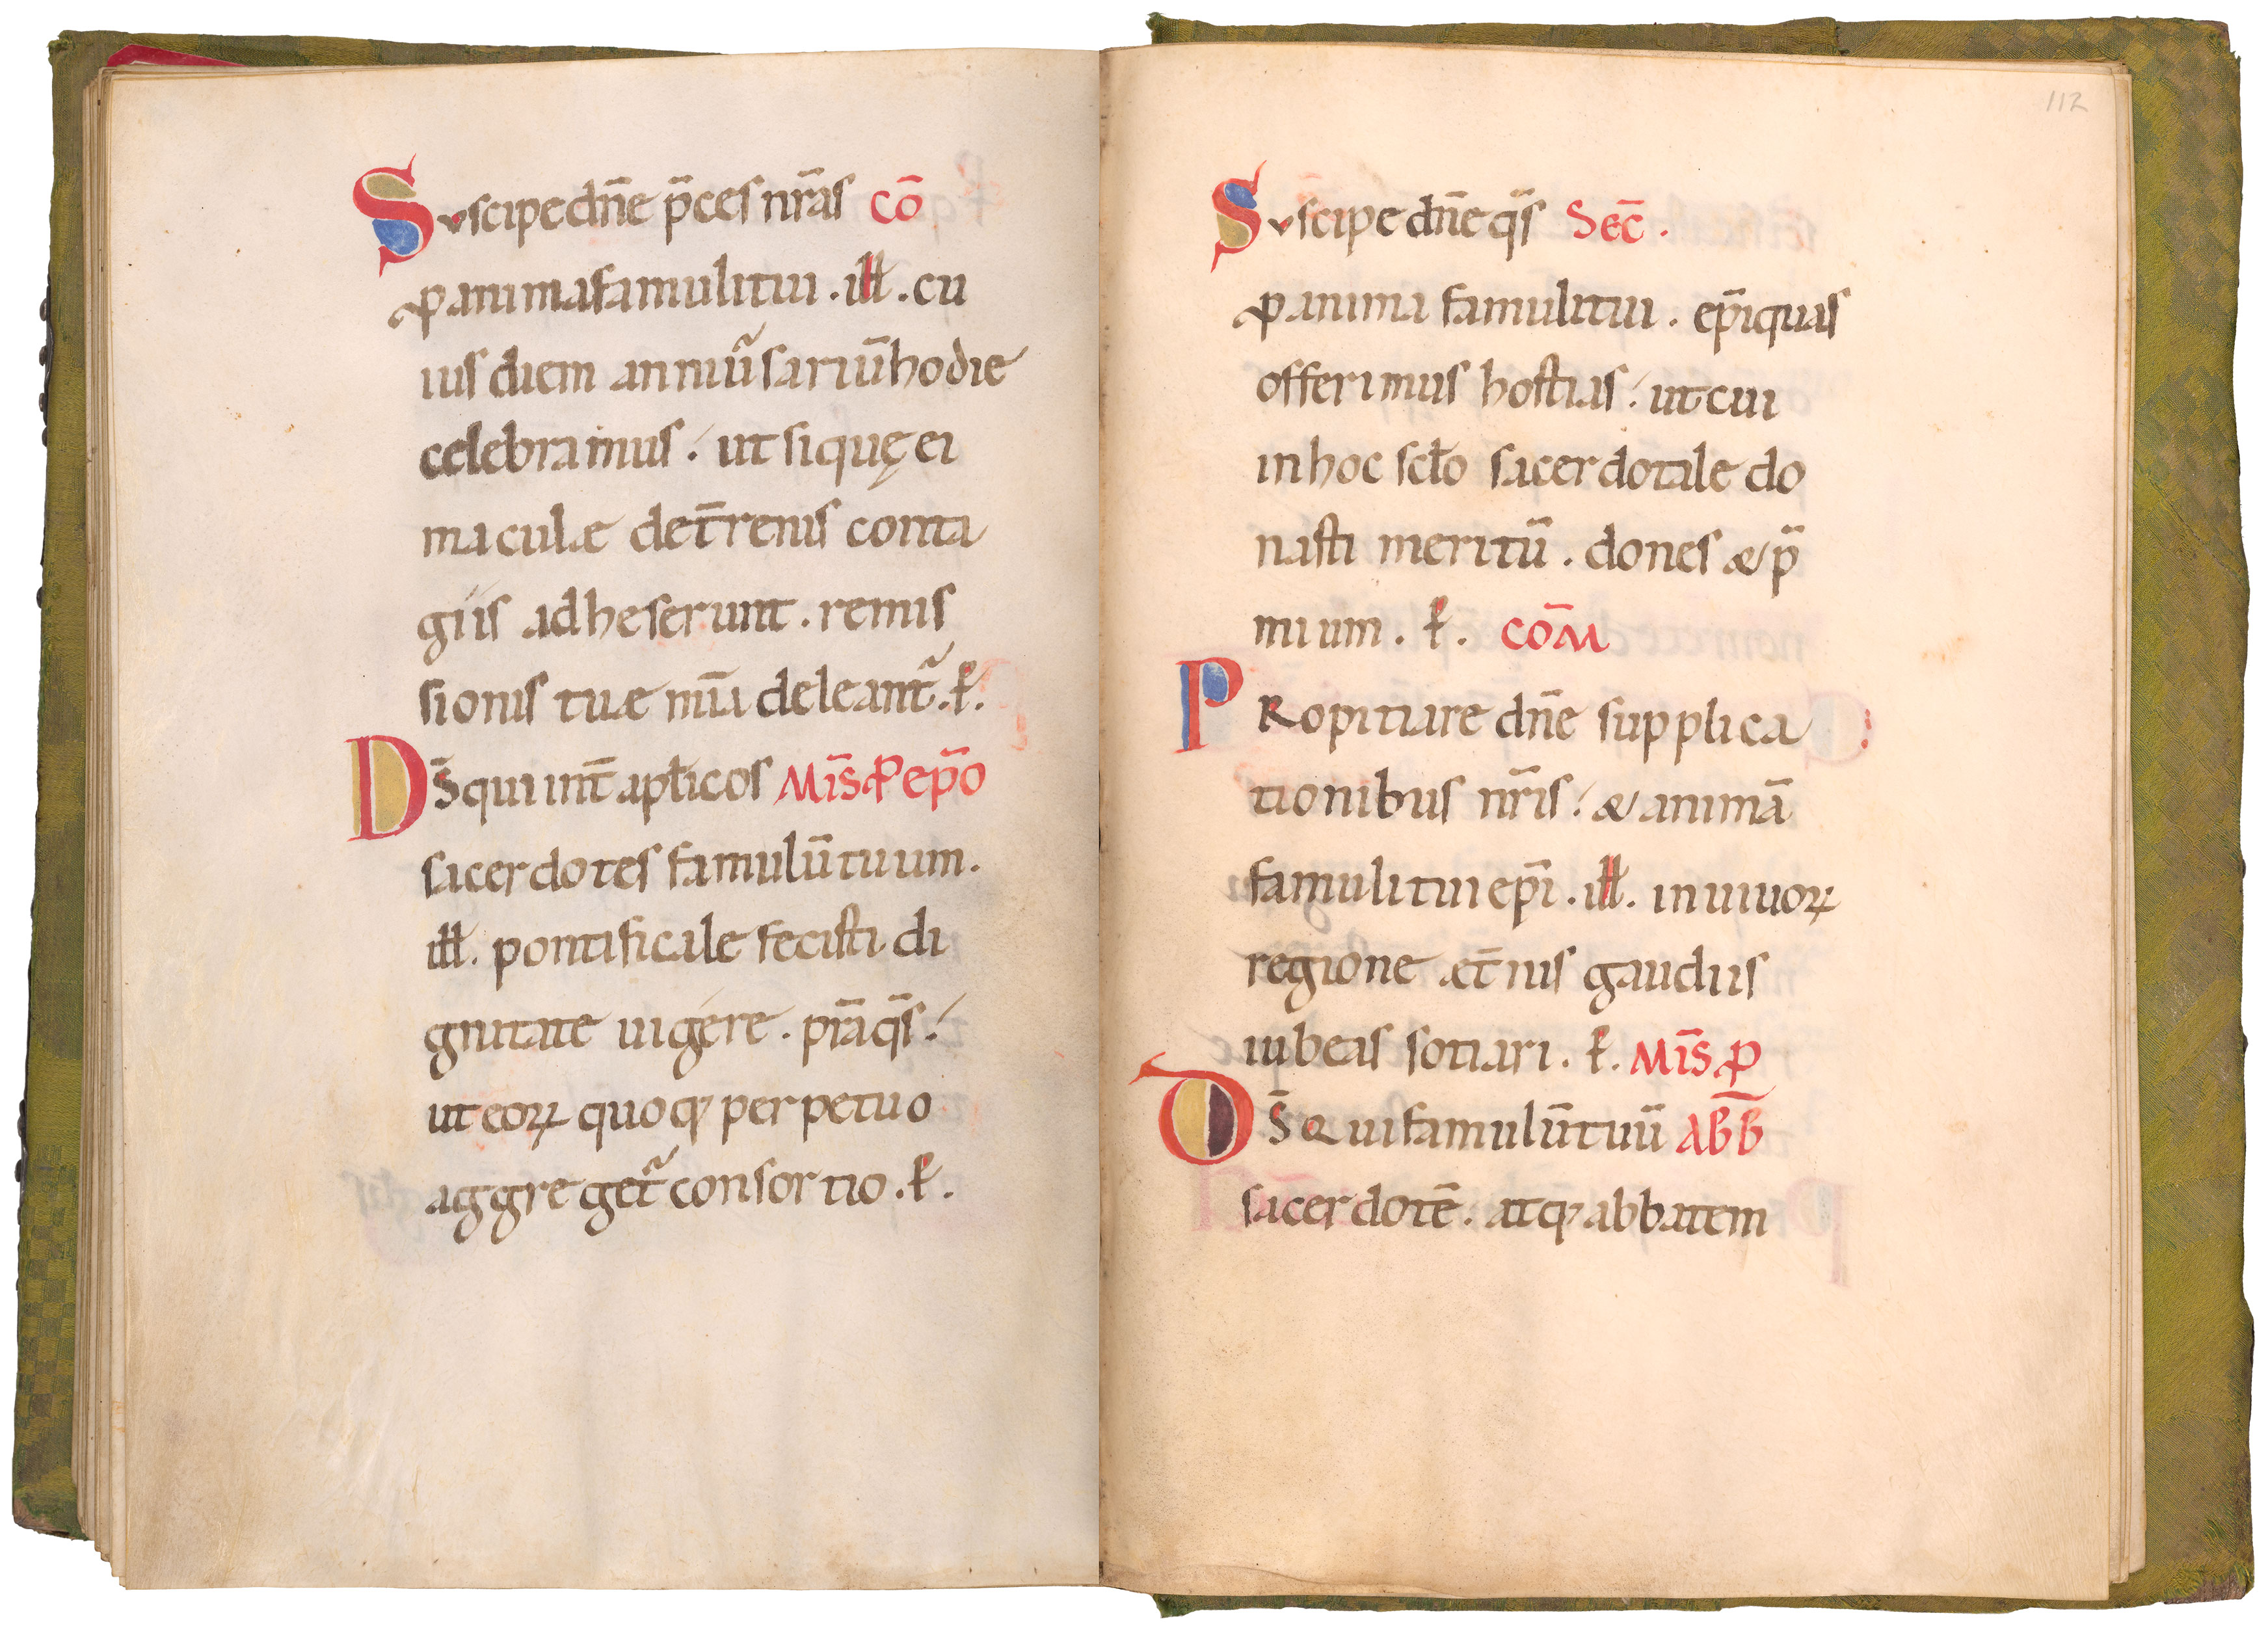 Suscipe dn̄e p̄ces nr̄as cō
ꝓ anima famuli tui . ill̵ . cu
ius diem anniũsariū hodie
celebramus . ut si quę ei
maculæ det̄renis conta
giis adheserunt . remis
sionis tuæ mīa deleant̃ . ꝑ .
Ds̄ qui int̄ apl̄icos Mīs ꝓ ep̄o
sacerdotes famulū tuum .
ill̵ . pontificale fecisti di
gnitate uigere . pr̄a qs̄ .
ut eoꝝ quoqꝫ perpetuo
aggreget̃ consortio . ꝑ .
112
Suscipe dn̄e qs̄ Sec̄ .
ꝓ anima famuli tui . ep̄i quas
offerimus hostias . ut cui
in hoc scl̄o sacerdotale do
nasti meritū . dones & p̄
mium . ꝑ . cōm
PRopitiare dn̄e supplica
tionibus nr̄is . & animā
famuli tui ep̄i . ill̵ . in uiuoꝝ
regione æt̄nis gaudiis
iubeas sotiari . ꝑ . Mīs ꝓ
Ds̄ Qui famulū tuū Abb̄
sacerdotē . atqꝫ abbatem